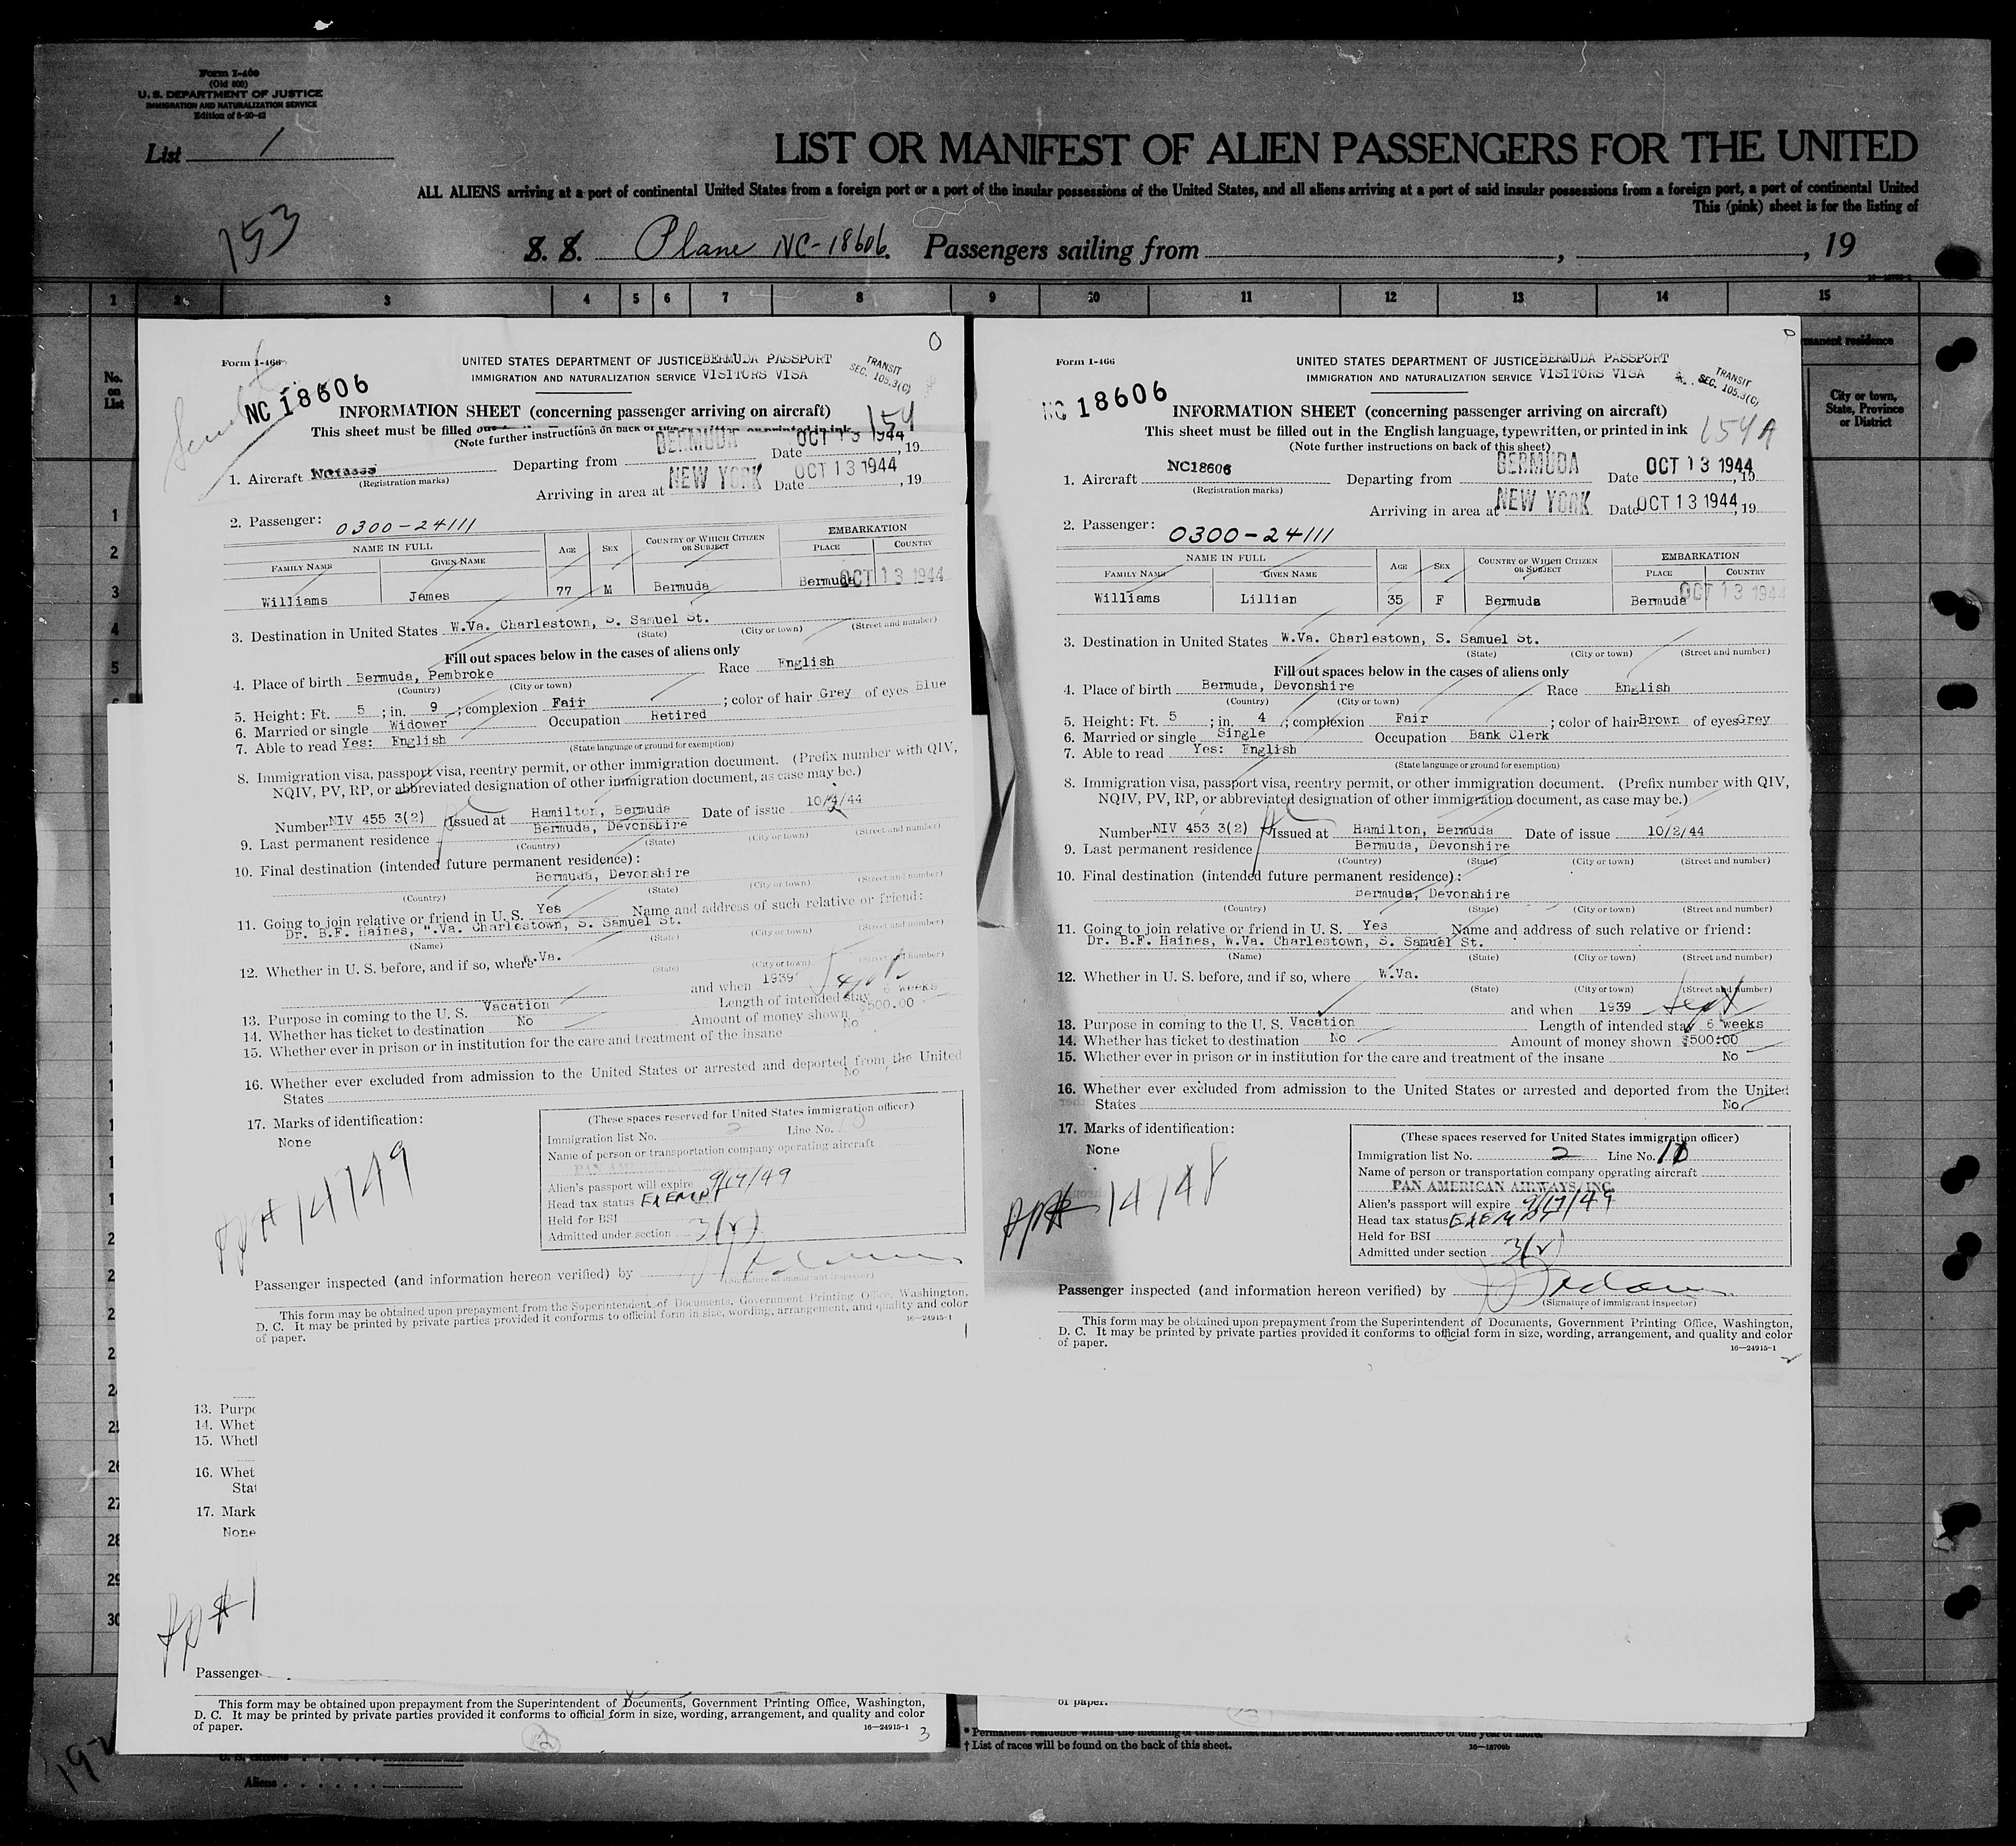 Form I-466
(Old 500)
U. S. DEPARTMENT OF JUSTICE
IMMIGRATION AND NATURALIZATION SERVICE
Edition of 6-20-42
List 1
LIST OR MANIFEST OF ALIEN PASSENGERS FOR THE UNITED
ALL ALIENS arriving at a port of continental United States from a foreign port or a port of the insular possessions of the United States, and all aliens arriving at a port of said insular possessions from a foreign port, a port of continental United
This (pink) sheet is for the listing of
153
S. S. Plane NC-18606. Passengers sailing from , , 19
1 2 3 4 5 6 7 8 9 10 11 12 13 14 15
No. on List
manent residence
City or town, State, Province or District
0
Form I-466
UNITED STATES DEPARTMENT OF JUSTICE BERMUDA PASSPORT
IMMIGRATION AND NATURALIZATION SERVICE VISITORS VISA
TRANSIT
SEC. 105.3(C)
NC 18606
INFORMATION SHEET (concerning passenger arriving on aircraft)
154
This sheet must be filled
(Note further instructions on back of
1. Aircraft
(Registration marks)
Departing from BERMUDA Date OCT 13 1944, 19
Arriving in area at NEW YORK Date OCT 13 1944, 19
2. Passenger: 0300-24111
NAME IN FULL
FAMILY NAME GIVEN NAME AGE SEX COUNTRY OF WHICH CITIZEN OR SUBJECT EMBARKATION PLACE COUNTRY
Williams James 77 M Bermuda Bermuda OCT 13 1944
3. Destination in United States W.Va. Charlestown, S. Samuel St.
(State) (City or town) (Street and number)
Fill out spaces below in the cases of aliens only
4. Place of birth Bermuda, Pembroke Race English
(Country) (City or town)
5. Height: Ft. 5 ; in. 9 ; complexion Fair ; color of hair Grey of eyes Blue
6. Married or single Widower Occupation Retired
7. Able to read Yes: English
(State language or ground for exemption)
8. Immigration visa, passport visa, reentry permit, or other immigration document. (Prefix number with QIV,
NQIV, PV, RP, or abbreviated designation of other immigration document, as case may be.)
Number NIV 455 3(2) Issued at Hamilton, Bermuda Date of issue 10/2/44
9. Last permanent residence Bermuda, Devonshire
(Country) (State) (City or town) (Street and number)
10. Final destination (intended future permanent residence):
Bermuda, Devonshire
(Country) (State) (City or town) (Street and number)
11. Going to join relative or friend in U. S. Yes Name and address of such relative or friend:
Dr. B.F. Haines, W.Va. Charlestown, S. Samuel St.
(Name) (State) (City or town) (Street and number)
12. Whether in U. S. before, and if so, where W.Va.
(State) (City or town) (Street and number)
and when 1939 Sept
13. Purpose in coming to the U. S. Vacation Length of intended stay 6 weeks
14. Whether has ticket to destination No Amount of money shown $500.00
15. Whether ever in prison or in institution for the care and treatment of the insane No
16. Whether ever excluded from admission to the United States or arrested and deported from the United
States No
17. Marks of identification:
None
pp# 14749
(These spaces reserved for United States immigration officer)
Immigration list No. 2 Line No. 10
Name of person or transportation company operating aircraft
PAN AM
Alien's passport will expire 9/17/49
Head tax status EXEMPT
Held for BSI
Admitted under section 3(2)
Passenger inspected (and information hereon verified) by
(Signature of immigrant inspector)
This form may be obtained upon prepayment from the Superintendent of Documents, Government Printing Office, Washington,
D. C. It may be printed by private parties provided it conforms to official form in size, wording, arrangement, and quality and color
of paper.
16—24915-1
1
0
Form I-466
UNITED STATES DEPARTMENT OF JUSTICE BERMUDA PASSPORT
IMMIGRATION AND NATURALIZATION SERVICE VISITORS VISA
TRANSIT
SEC. 105.3(C)
NC 18606
INFORMATION SHEET (concerning passenger arriving on aircraft)
This sheet must be filled out in the English language, typewritten, or printed in ink
154A
(Note further instructions on back of this sheet)
1. Aircraft NC18606 Departing from BERMUDA Date OCT 13 1944, 19
(Registration marks)
Arriving in area at NEW YORK Date OCT 13 1944, 19
2. Passenger: 0300-24111
NAME IN FULL
FAMILY NAME GIVEN NAME AGE SEX COUNTRY OF WHICH CITIZEN OR SUBJECT EMBARKATION PLACE COUNTRY
Williams Lillian 35 F Bermuda Bermuda OCT 13 1944
3. Destination in United States W.Va. Charlestown, S. Samuel St.
(State) (City or town) (Street and number)
Fill out spaces below in the cases of aliens only
4. Place of birth Bermuda, Devonshire Race English
(Country) (City or town)
5. Height: Ft. 5 ; in. 4 ; complexion Fair ; color of hair Brown of eyes Grey
6. Married or single Single Occupation Bank Clerk
7. Able to read Yes: English
(State language or ground for exemption)
8. Immigration visa, passport visa, reentry permit, or other immigration document. (Prefix number with QIV,
NQIV, PV, RP, or abbreviated designation of other immigration document, as case may be.)
Number NIV 453 3(2) Issued at Hamilton, Bermuda Date of issue 10/2/44
9. Last permanent residence Bermuda, Devonshire
(Country) (State) (City or town) (Street and number)
10. Final destination (intended future permanent residence):
Bermuda, Devonshire
(Country) (State) (City or town) (Street and number)
11. Going to join relative or friend in U. S. Yes Name and address of such relative or friend:
Dr. B.F. Haines, W.Va. Charlestown, S. Samuel St.
(Name) (State) (City or town) (Street and number)
12. Whether in U. S. before, and if so, where W.Va.
(State) (City or town) (Street and number)
and when 1939 Sept
13. Purpose in coming to the U. S. Vacation Length of intended stay 6 weeks
14. Whether has ticket to destination No Amount of money shown $500:00
15. Whether ever in prison or in institution for the care and treatment of the insane No
16. Whether ever excluded from admission to the United States or arrested and deported from the United
States No
17. Marks of identification:
None
pp# 14748
(These spaces reserved for United States immigration officer)
Immigration list No. 2 Line No. 11
Name of person or transportation company operating aircraft
PAN AMERICAN AIRWAYS, INC.
Alien's passport will expire 9/17/49
Head tax status EXEMPT
Held for BSI
Admitted under section 3(2)
Passenger inspected (and information hereon verified) by
(Signature of immigrant inspector)
This form may be obtained upon prepayment from the Superintendent of Documents, Government Printing Office, Washington,
D. C. It may be printed by private parties provided it conforms to official form in size, wording, arrangement, and quality and color
of paper.
16—24915-1
2
13. Purpo
14. Whet
15. Wheth
16. Whet
Stat
17. Mark
None
pp # 1
Passenger
This form may be obtained upon prepayment from the Superintendent of Documents, Government Printing Office, Washington,
D. C. It may be printed by private parties provided it conforms to official form in size, wording, arrangement, and quality and color
of paper.
16—24915-1
3
of paper.
* Permanent residence within the meaning of this manifest shall be actual or intended residence of one year or more.
† List of races will be found on the back of this sheet.
16—18709b
Aliens